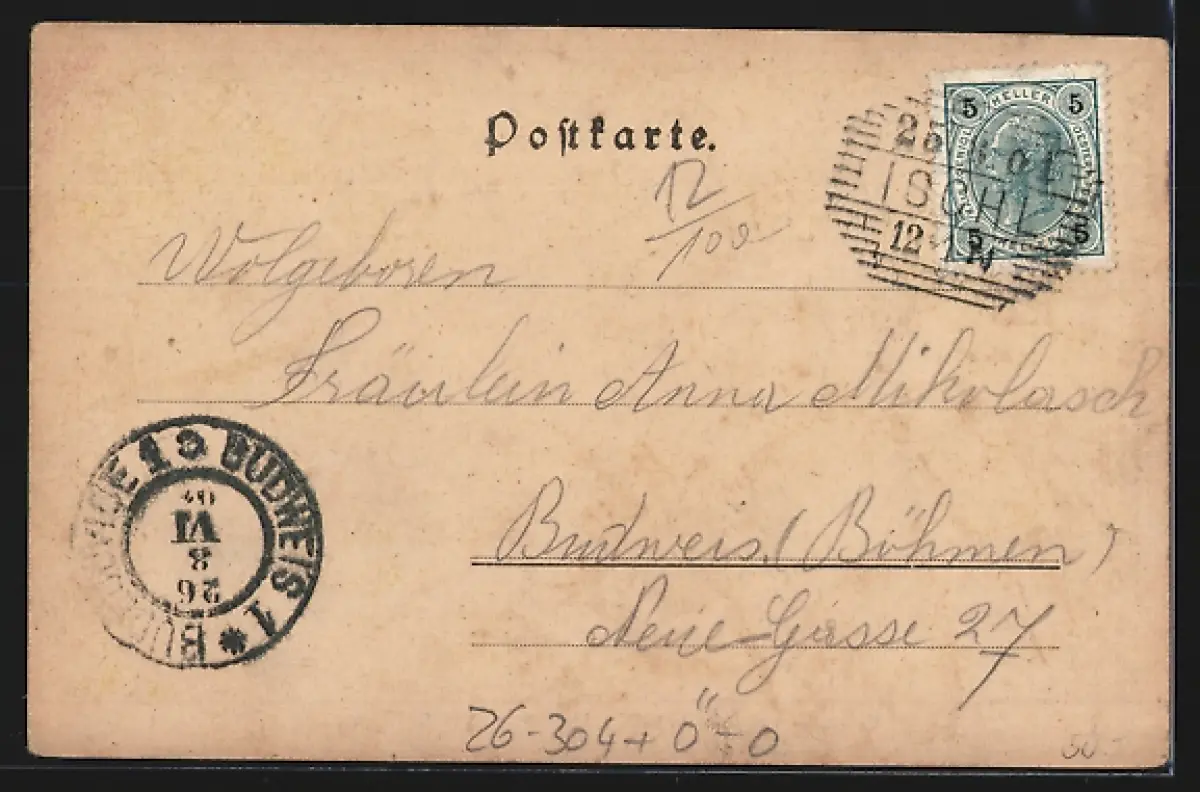 Postkarte.
5 HELLER 5
25
ISCHL
12 N
5 5
12/102
Wolgeboren
Fräulein Anna Mikolasch
BUDWEIS 1
VI
8
26
Budweis, (Böhmen)
Neue Gasse 27
26-304+Ö-0
50